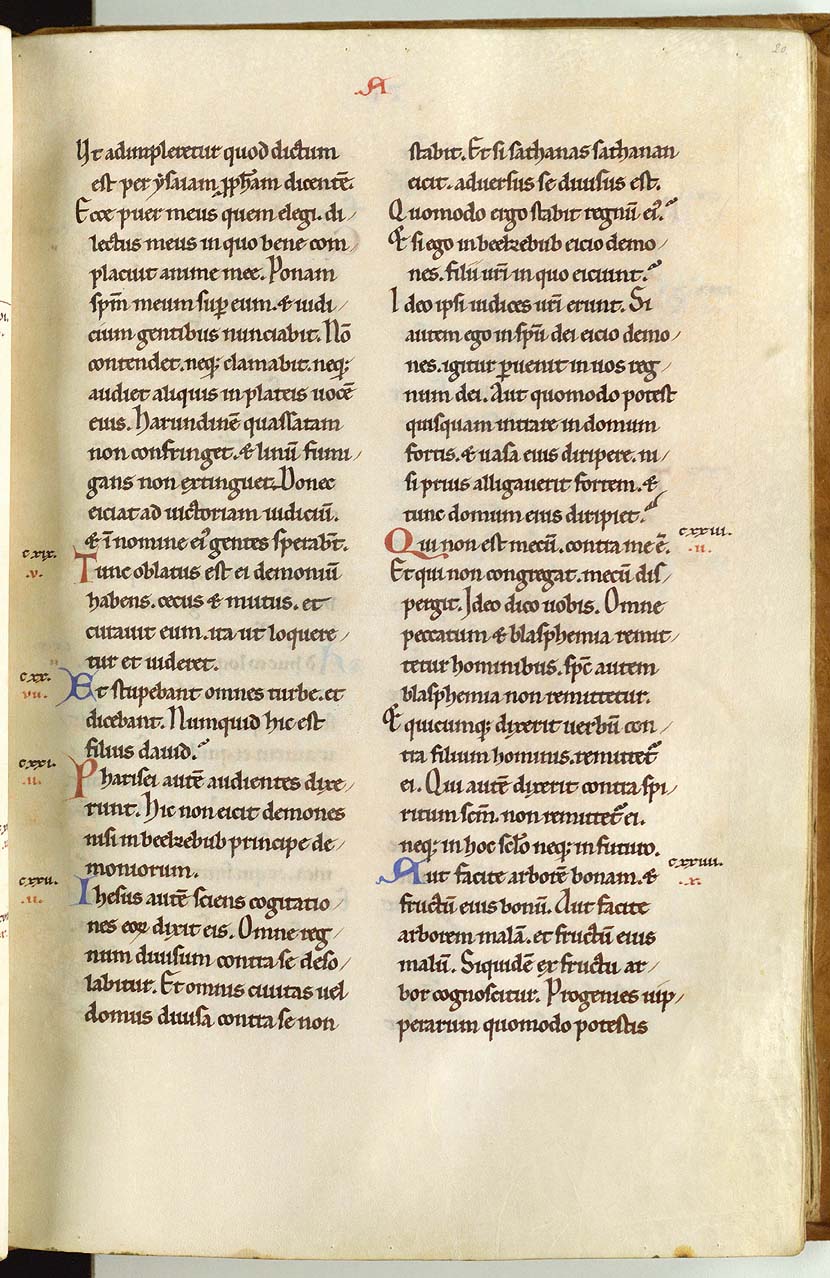 20
A
Ut adimpleretur quod dictum
est per ysaiam ꝓph̄am dicentē.
Ecce puer meus quem elegi. di/
lectus meus in quo bene com
placuit anime mee. Ponam
spm̄ meum suꝑ eum. & iudi/
cium gentibus nunciabit. Nō
contendet. neq; clamabit. neq;
audiet aliquis in plateis uocē
eius. Harundinē quassatam
non confringet. & linū fumi/
gans non extinguet. Donec
eiciat ad uictoriam iudiciū.
& ī nomine ei' gentes sperabt̄.
cxix.
.v.
Tunc oblatus est ei demoniū
habens. cecus & mutus. et
curauit eum. ita ut loquere/
tur et uideret.
cxx.
vii.
Et stupebant omnes turbe. et
dicebant. Numquid hic est
filius dauid.
cxxi.
.ii.
Pharisei autē audientes dixe/
runt. Hic non eicit demones
nisi in beelzebub principe de/
moniorum.
cxxii.
.ii.
Ihesus autē sciens cogitatio/
nes eoꝝ dixit eis. Omne reg/
num diuisum contra se deso/
labitur. Et omnis ciuitas uel
domus diuisa contra se non
stabit. Et si sathanas sathanan
eicit. adversus se diuisus est.
Quomodo ergo stabit regnū ei'.
Et si ego in beelzebub eicio demo/
nes. filii ur̄i in quo eiciunt.
Ideo ipsi iudices ur̄i erunt. Si
autem ego in spū dei eicio demo/
nes. igitur ꝑuenit in uos reg/
num dei. Aut quomodo potest
quisquam intrare in domum
fortis. & uasa eius diripere. ni/
si prius alligaverit fortem. &
tunc domum eius diripiet.
cxxiii.
.ii.
Qui non est mecū. contra me ē.
Et qui non congregat. mecū dis/
pergit. Ideo dico uobis. Omne
peccatum & blasphemia remit/
tetur hominibus. spc̄ autem
blasphemia non remittetur.
Et quicumq; dixerit uerbū con/
tra filium hominis. remittet᷑
ei. Qui autē dixerit contra spi/
ritum scm̄. non remittet᷑ ei.
neq; in hoc sclo̅ neq; in futuro.
cxxiiii.
.x.
Aut facite arborē bonam. &
fructū eius bonū. Aut facite
arborem malā. et fructū eius
malū. Siquidē ex fructu ar/
bor cognoscitur. Progenies uip/
perarum quomodo potestis